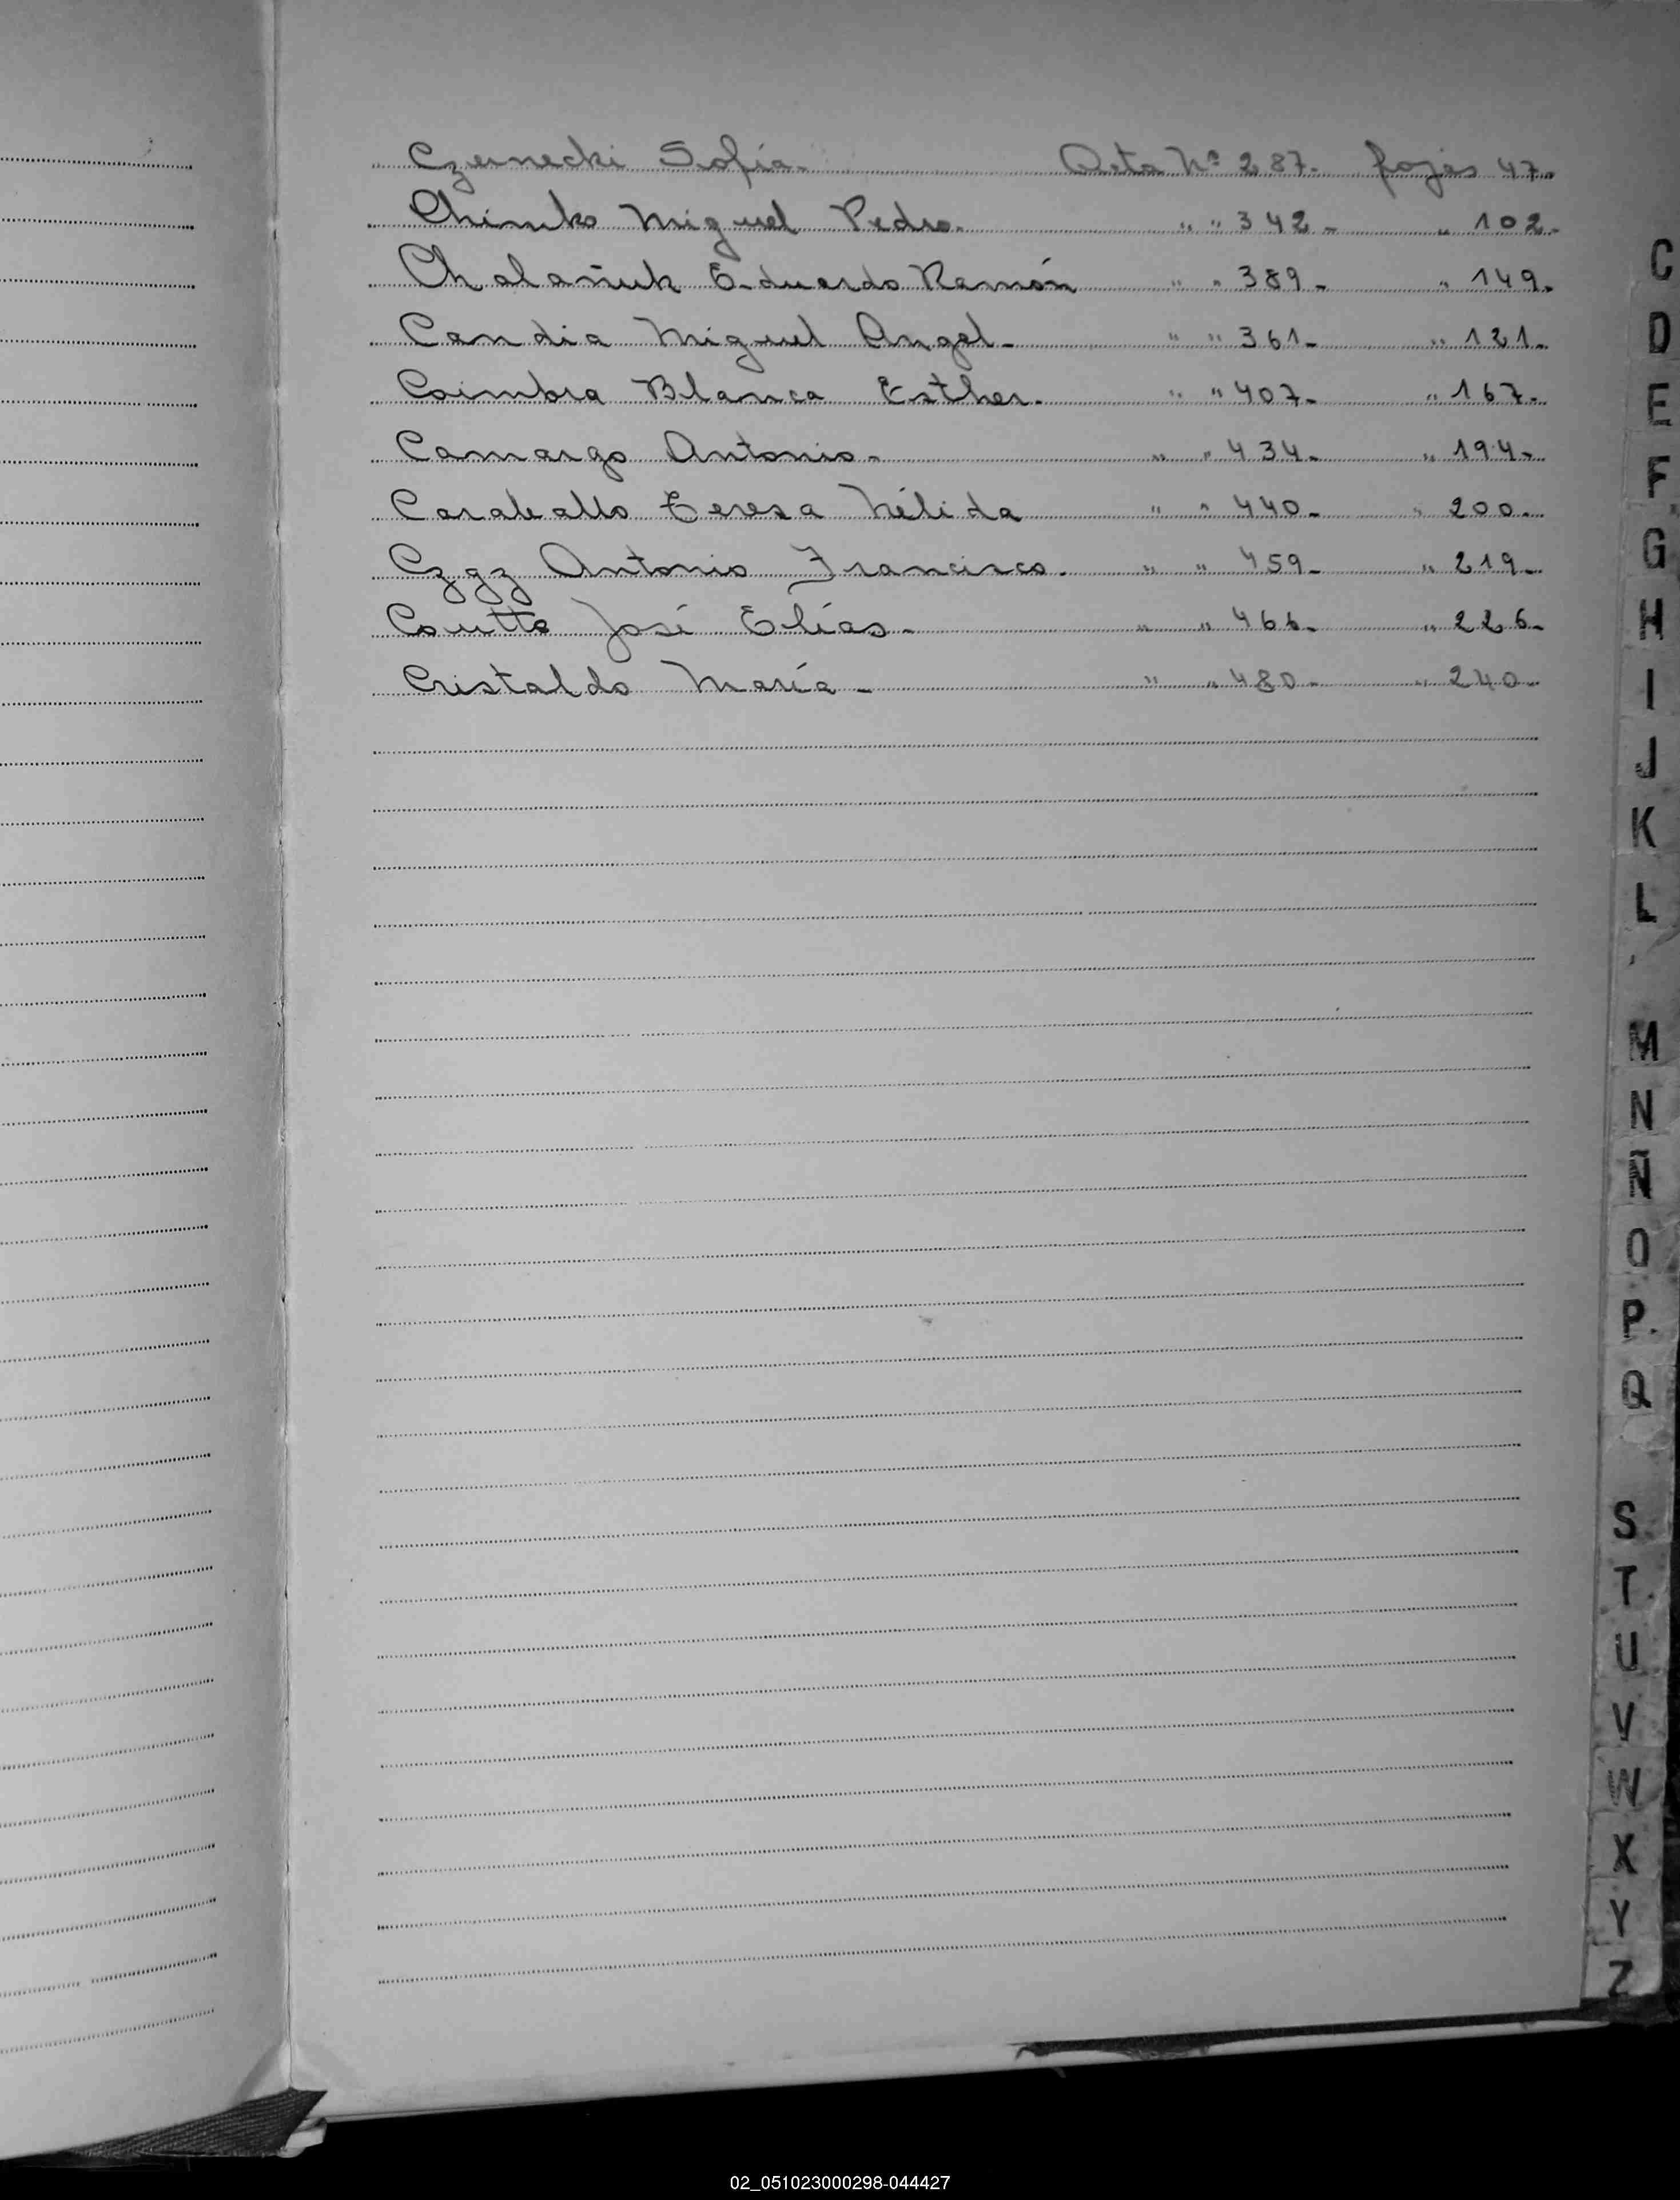 Czernecki Sofía. Acta Nº 287. fojas 47.
Chimko Miguel Pedro. " " 342- " 102-
Chalañuk Eduardo Ramón " " 389- " 149.
Candia Miguel Angel- " " 361- " 121-
Coimbra Blanca Esther. " " 407- " 167-
Camargo Antonio- " " 434- " 194-
Caraballo Teresa Nélida " " 440- " 200-
Czgz Antonio Francisco. " " 459- " 219-
Coutto José Elías- " " 466- " 226-
Cristaldo María- " " 480- " 240-
C
D
E
F
G
H
I
J
K
L
M
N
Ñ
O
P
Q
S
T
U
V
W
X
Y
Z
02_051023000298-044427